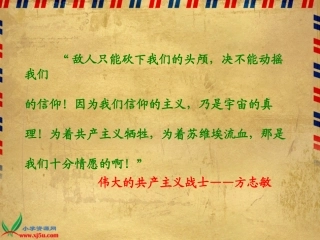 “ 敌人只能砍下我们的头颅，决不能动摇
我们
的信仰！因为我们信仰的主义，乃是宇宙的真
理！为着共产主义牺牲，为着苏维埃流血，那是
我们十分情愿的啊！”
伟大的共产主义战士——方志敏
小学资源网
www.xj5u.com